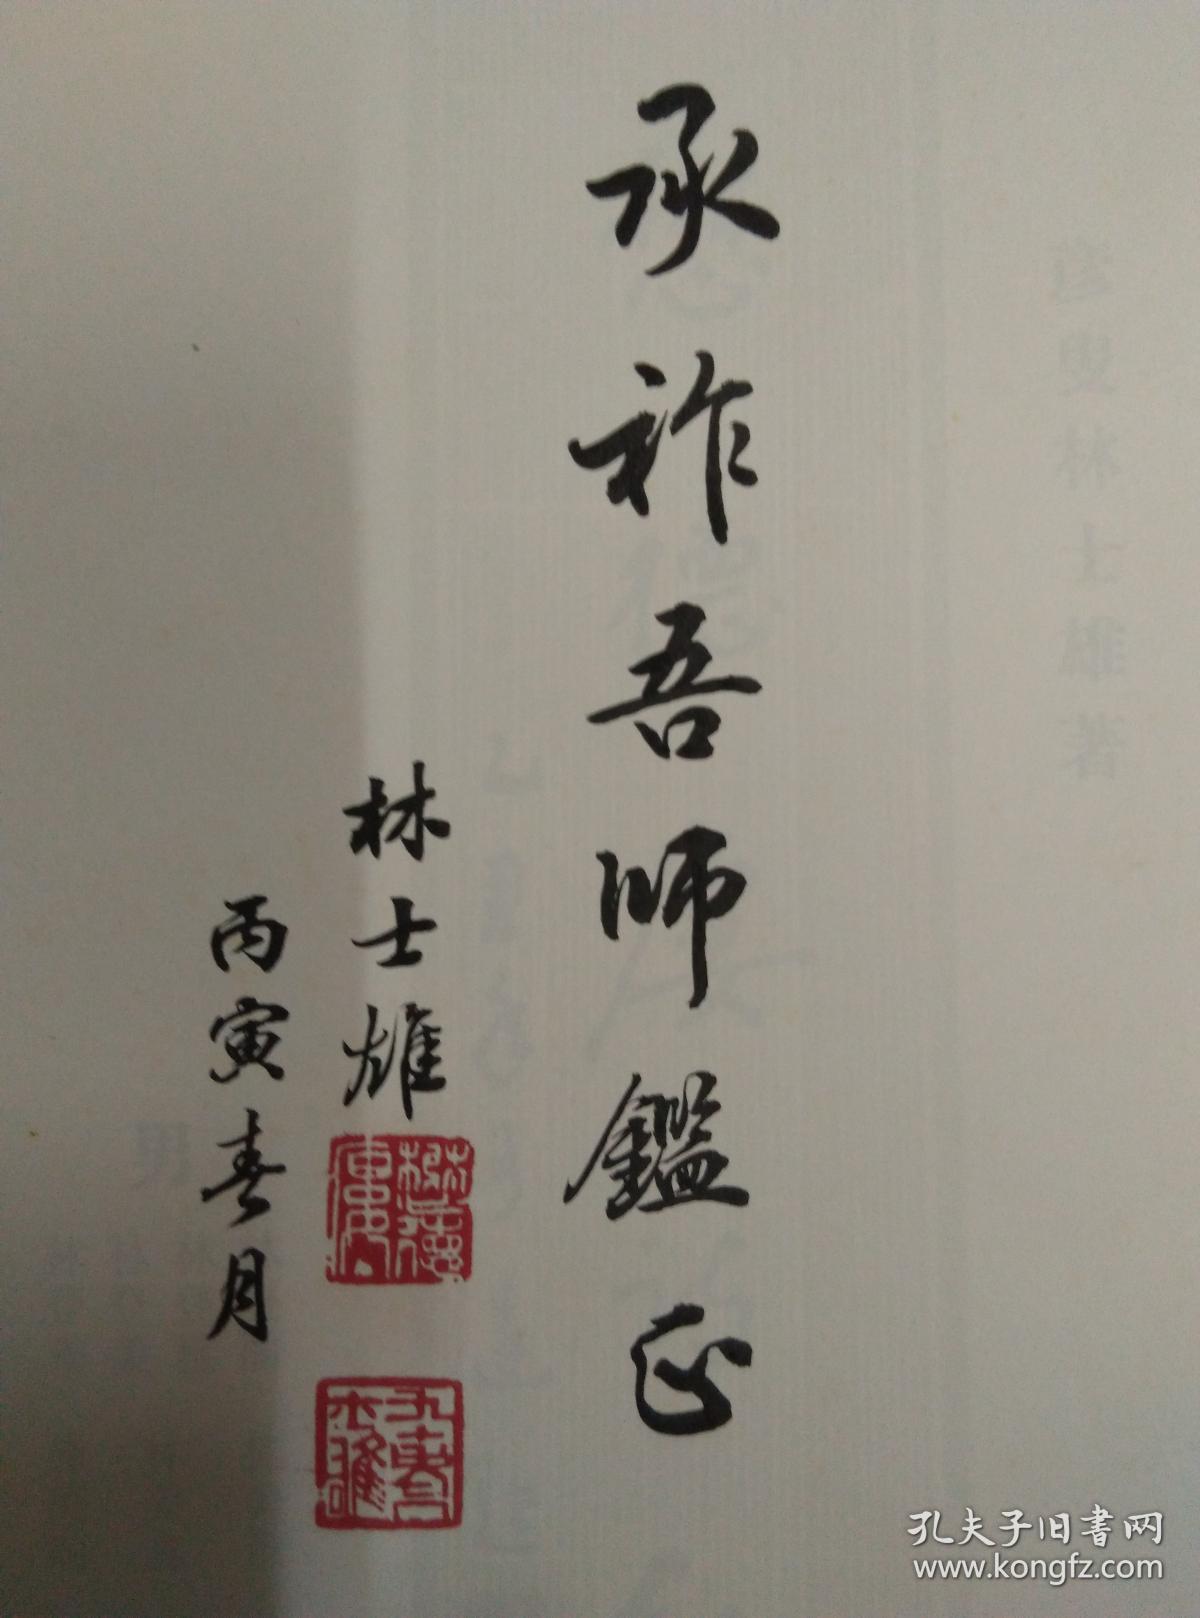 承祚吾師鑑正
林士雄
丙寅春月
林士雄著
孔夫子旧書网
www.kongfz.com